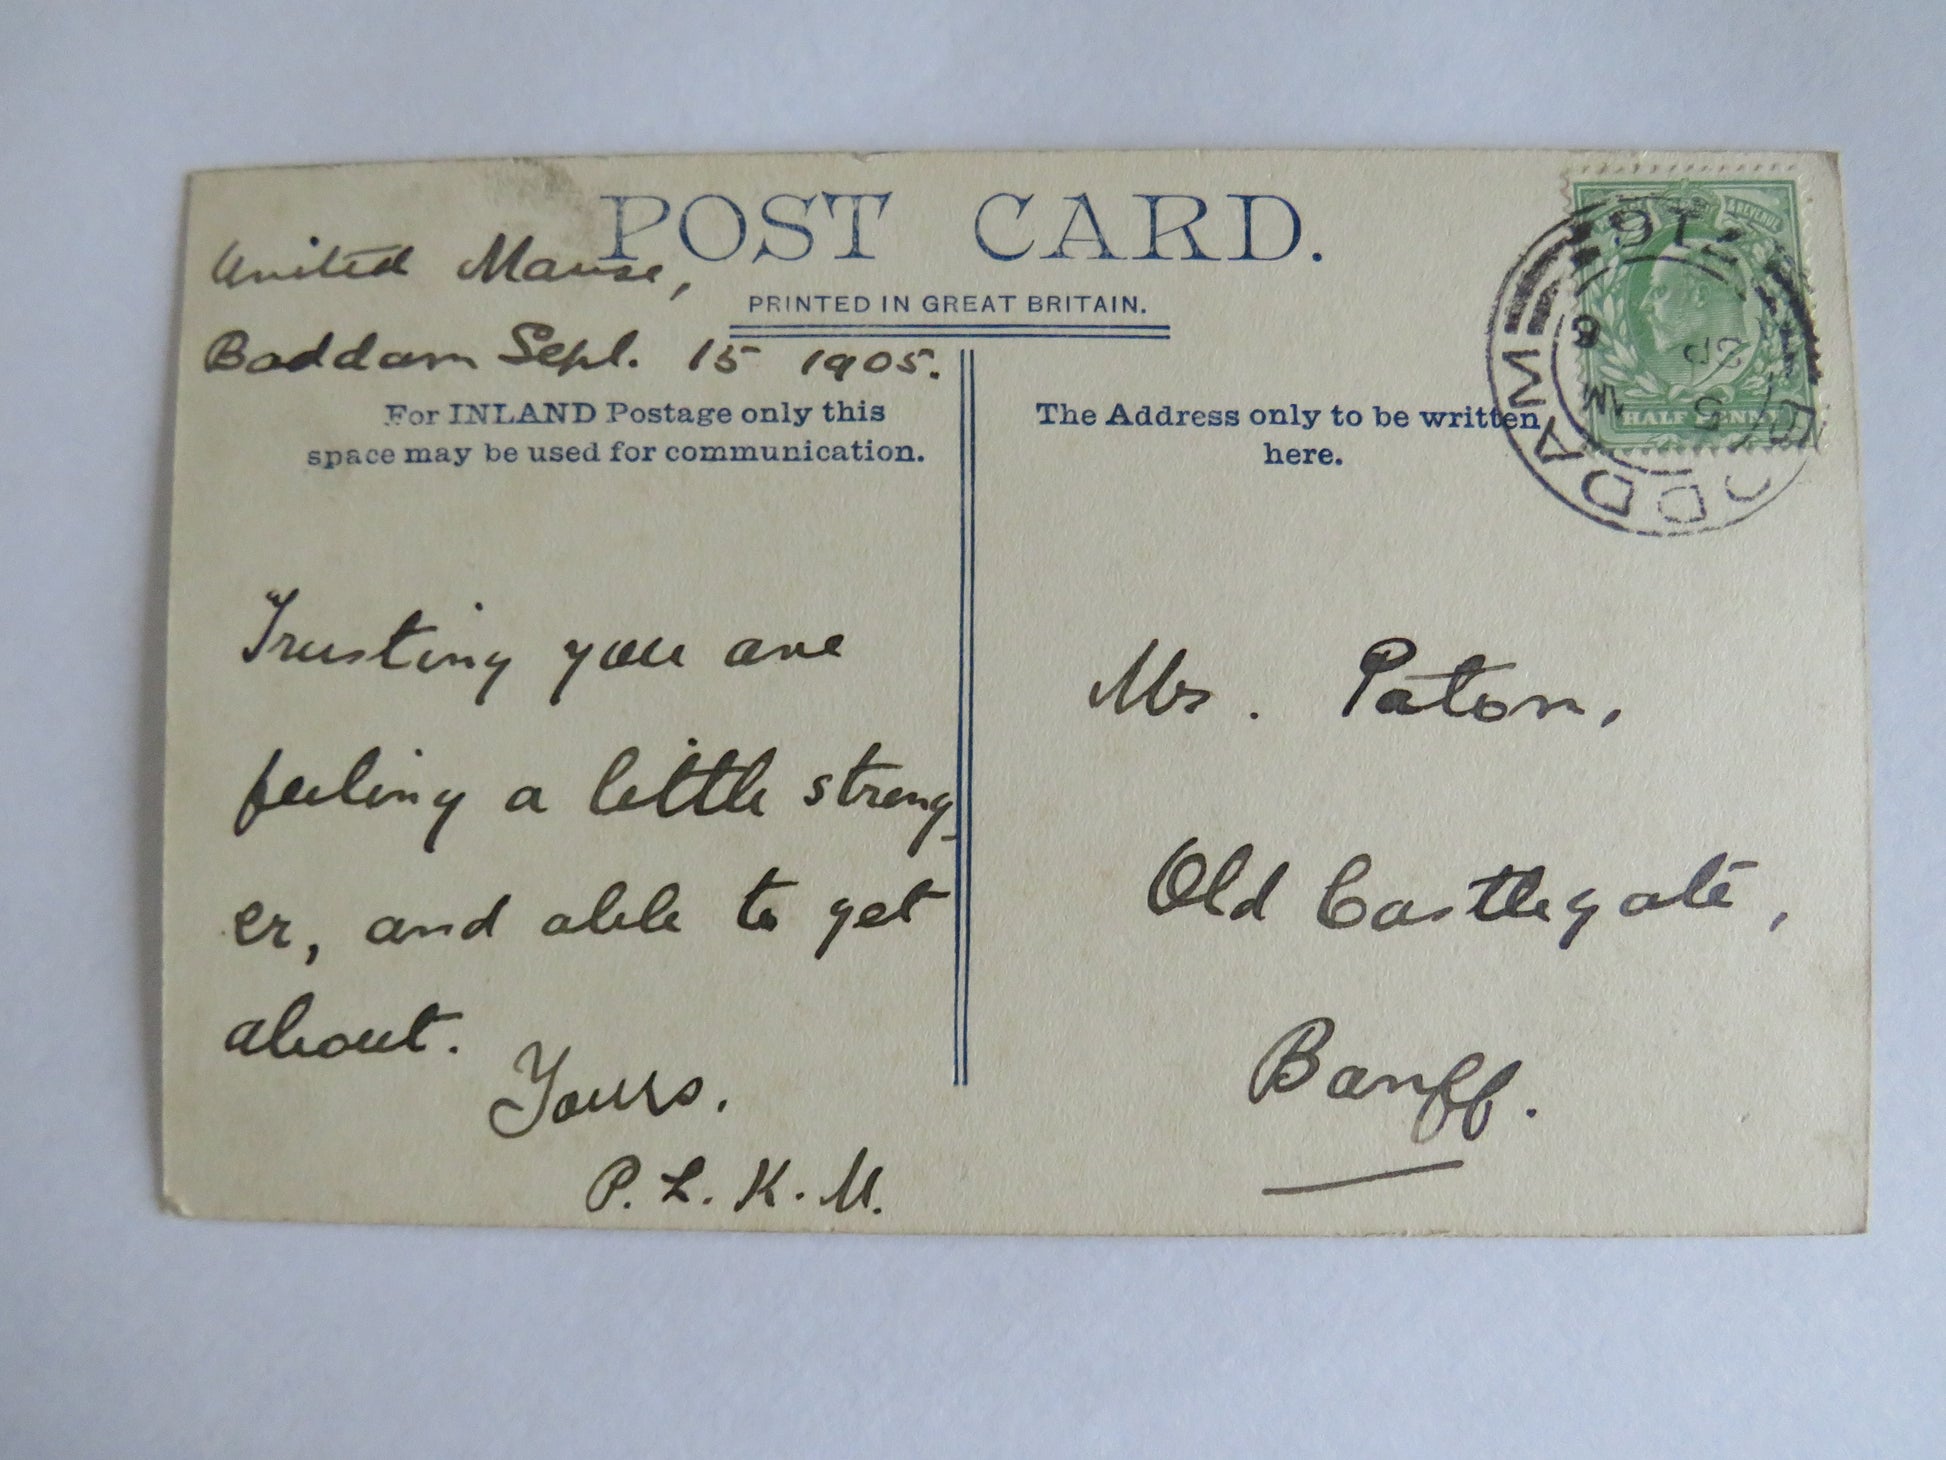 POST CARD.
PRINTED IN GREAT BRITAIN.
United Manse,
Boddam Sept. 15 1905.
For INLAND Postage only this
space may be used for communication.
Trusting you are
feeling a little strong-
er, and able to get
about.
Yours.
P. L. K. M.
The Address only to be written
here.
Mrs. Paton,
Old Castlegate,
Banff.
HALF PENNY
BODDAM